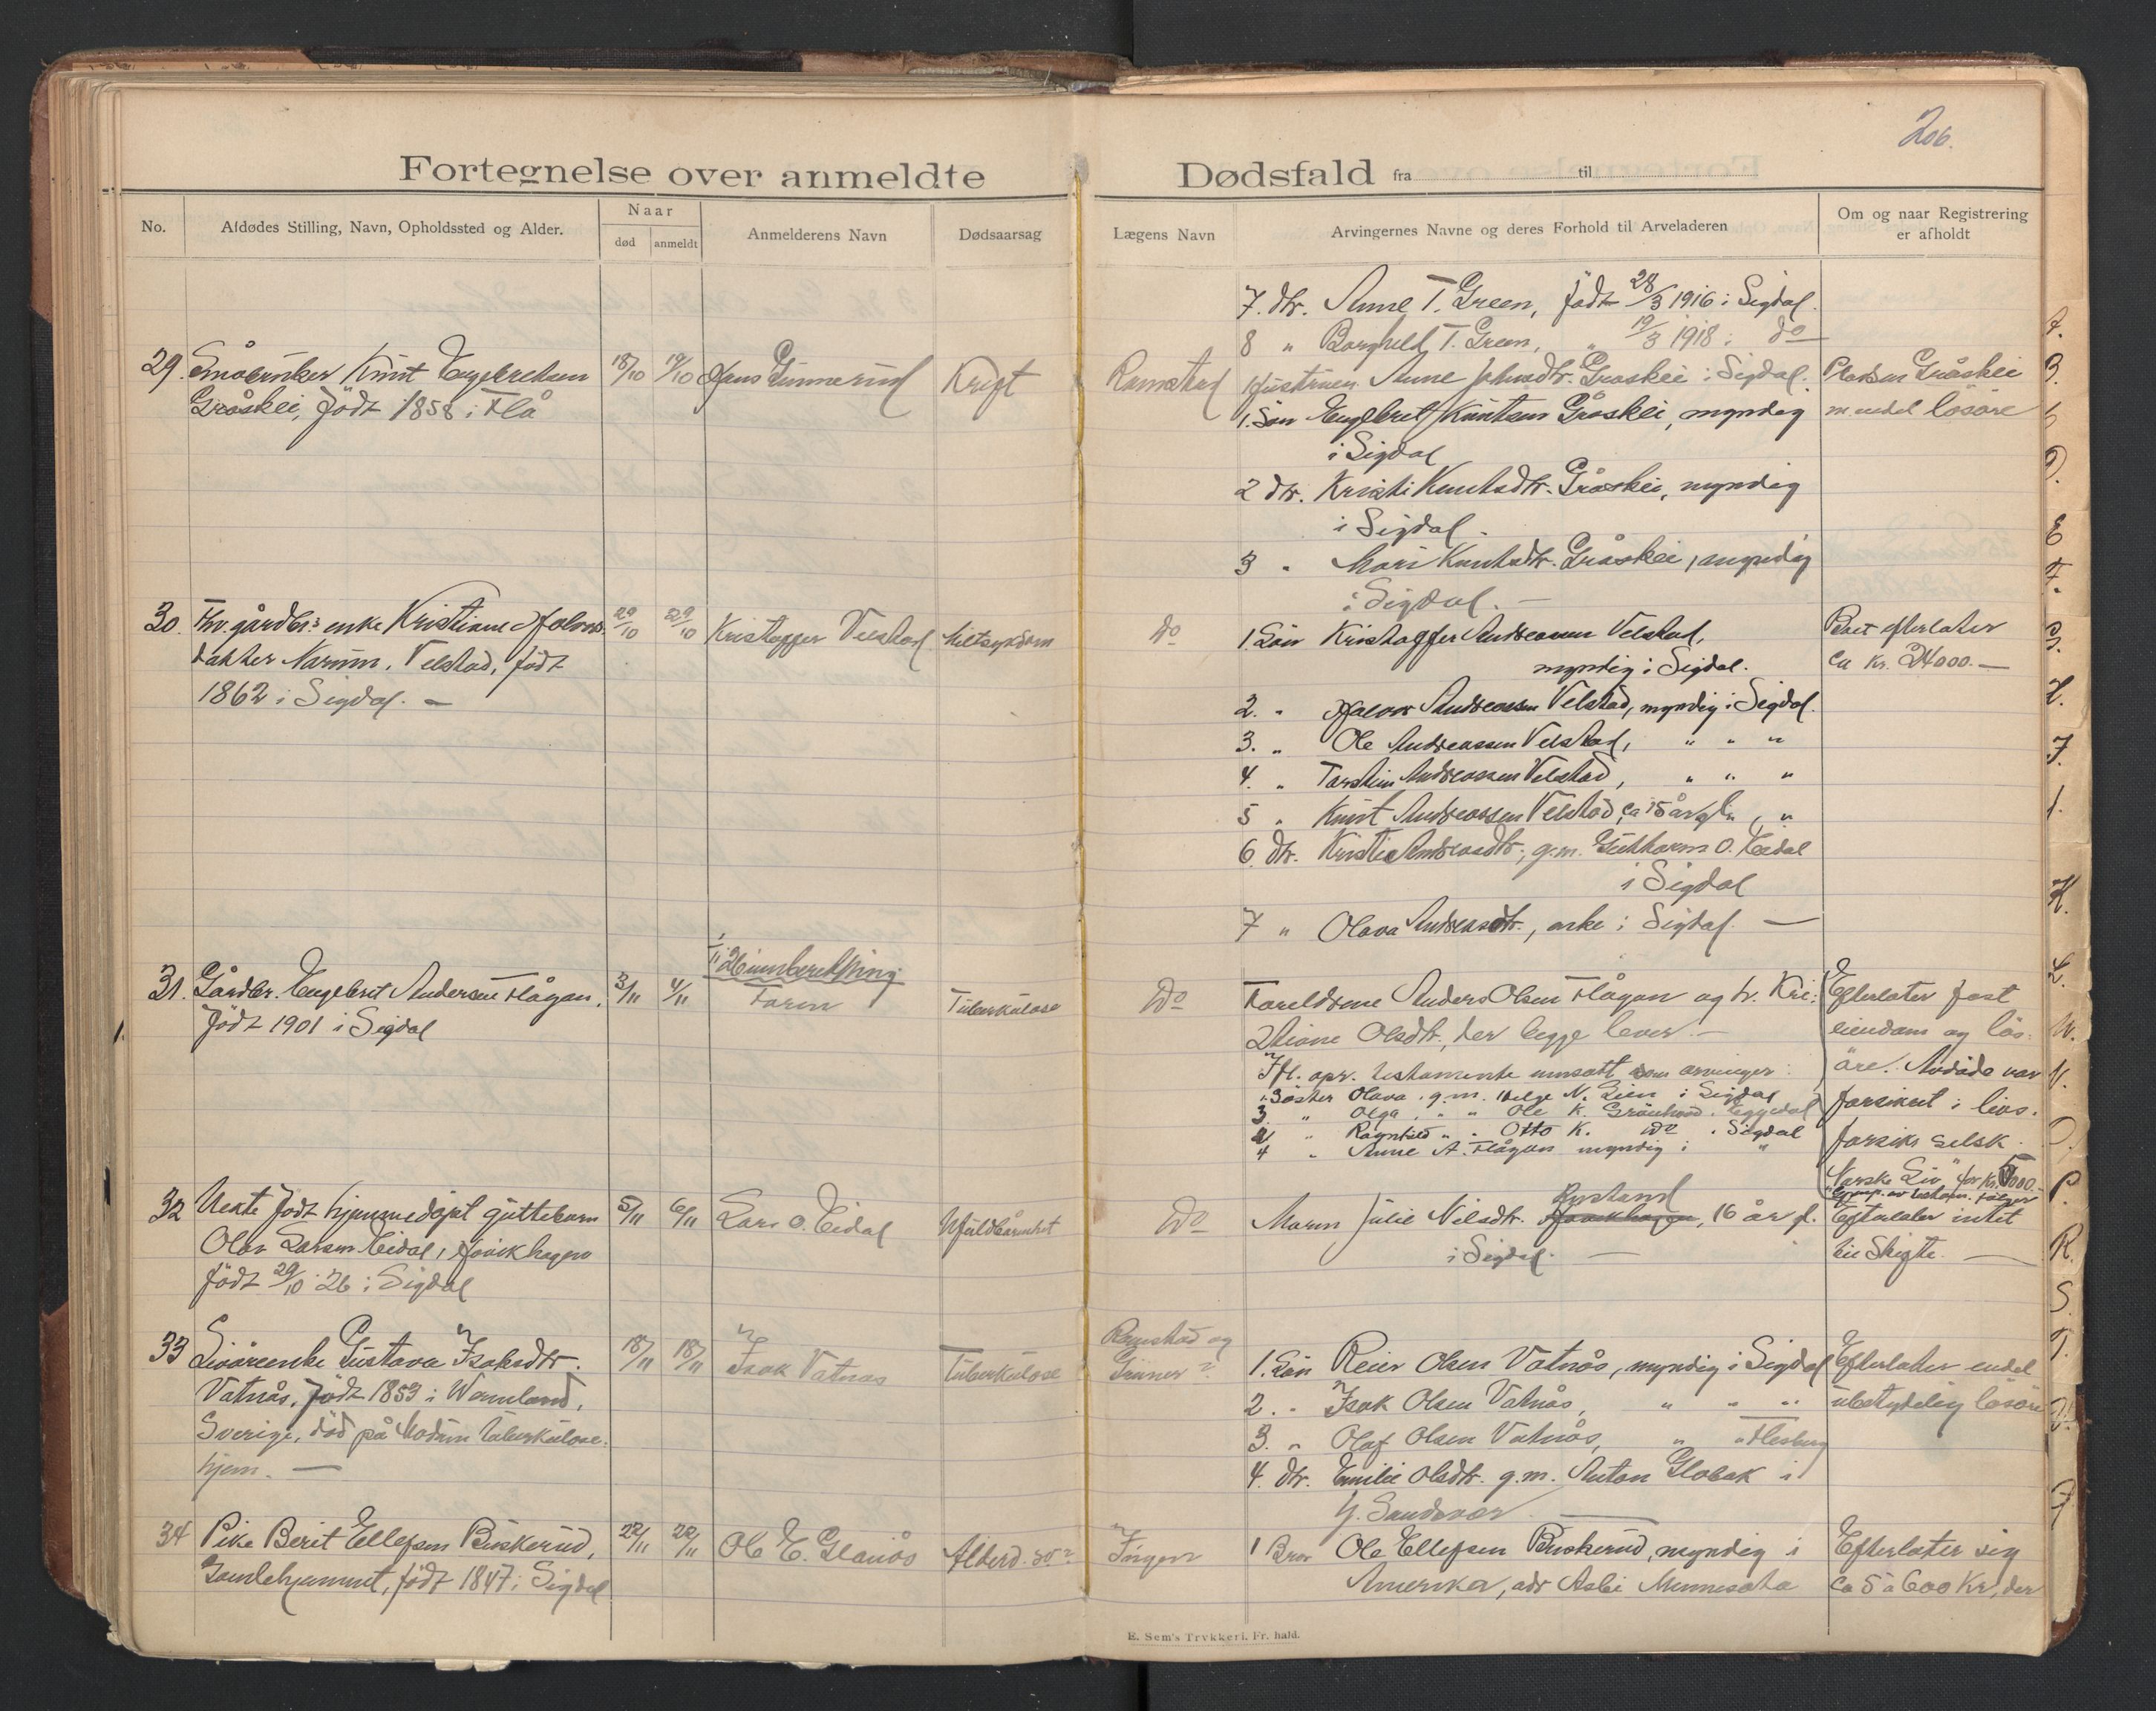 206.
Fortegnelse over anmeldte Dødsfald fra til
No.
Afdødes Stilling, Navn, Opholdssted og Alder.
Naar
død
anmeldt
Anmelderens Navn
Dødsaarsag
Lægens Navn
Arvingernes Navne og deres Forhold til Arveladeren
Om og naar Registrering
er afholdt
7. dtr. Anne T. Green, født 28/3 1916 i Sigdal.
8 " Borghild T. Green, " 19/3 1918 i do
29. Småbruker Knut Engebretsen 18/10 19/10 Hans Gunnerud Kreft Ramstad Hustruen Anne Johnsdtr. Gråskei i Sigdal. Pladsen Gråskei
Gråskei, født 1858 i Flå 1. Søn Engebret Knutsen Gråskei, myndig m. endel løsøre
i Sigdal
2 dtr. Kristi Knutsdtr. Gråskei, myndig
i Sigdal.
3 " Mari Knutsdtr. Gråskei, myndig
i Sigdal. —
30. Fhv. gårdbr.s enke Kristiane Halvors- 29/10 29/10 Kristoffer Velstad Miltsykdom do 1. Søn Kristoffer Andreassen Velstad, Boet efterlater
datter Narum, Velstad, født myndig i Sigdal. ca kr. 24000.—
1862 i Sigdal. —
2. " Halvor Andreassen Velstad, myndig i Sigdal.
3. " Ole Andreassen Velstad, " " "
4. " Torstein Andreassen Velstad, " " "
5 " Knut Andreassen Velstad, ca 15 år gl. " , "
6. dtr. Kristi Andreasdtr., g.m. Guthorm O. Eidal
i Sigdal
7 " Olava Andreasdtr., enke i Sigdal. —
1/11 26 innberetning
31. Gårdbr. Engebret Andersen Flågan, 3/11 4/11 Faren Tuberkulose do Foreldrene Anders Olsen Flågan og h. Kri- Efterlater fast
født 1901 i Sigdal stiane Olsdtr., der begge lever. — eiendom og løs-
Ifl. opr. testamente innsatt som arvinger: øre. Avdøde var
1. Søster Olava, g.m. Helge N. Lien i Sigdal forsikret i livs-
" Olga, " " Ole K. Grønhovd i Eggedal
" Ragnhild " " Otto K. do i Sigdal forsikr. selsk.
4 " Anne A. Flågan myndig i "
"Norske Liv" for kr.
32 Neste født hjemmedøpt guttebarn 5/11 6/11 Lars O. Eidal Ufuldbårenhet do Moren Julie Nilsdtr. , 16 år gl. Efterlater intet
Olav Larsen Eidal, i Sigdal. — til Skifte. —
født 29/10 26 i Sigdal
33 Livøreenke Gustava Isaksdtr. 18/11 18/11 Isak Vatnås Tuberkulose Ramstad og 1. Søn Reier Olsen Vatnås, myndig i Sigdal Efterlater endel
Vatnås, født 1853 i Wermland, 2. " Isak Olsen Vatnås, " " " ubetydelig løsøre
Sverige, død på Modum tuberkulose- 3. " Olaf Olsen Vatnås, " " Flesberg
hjem. — 4. dtr. Emilie Olsdtr. g.m. Anton Globak i
Y. Sandsvær
34 Pike Berit Ellefsen Buskerud, 22/11 22/11 Ole E. Glaiås Alderd. Ingen 1 Bror Ole Ellefsen Buskerud, myndig i Efterlater sig
Gamlehjemmet, født 1847 i Sigdal Amerika, adr Asbi Minnesota ca 5 a 600 Kr, der
E. Sem's Trykkeri, Fr. hald.